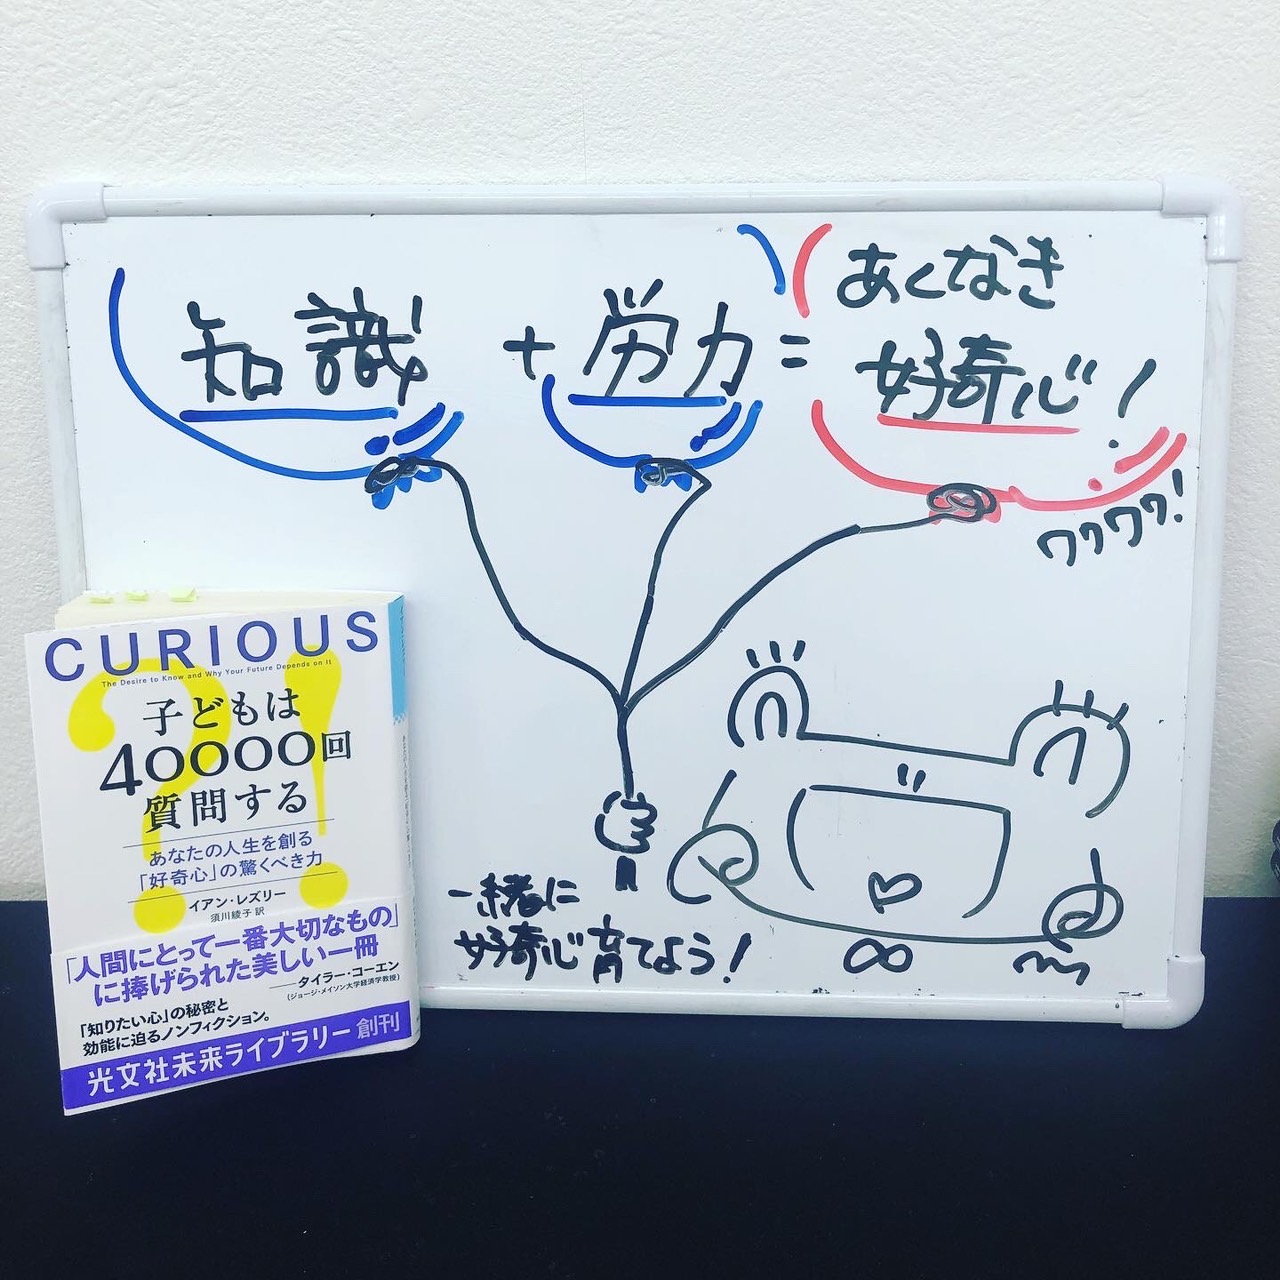 知識 + 労力 = あくなき
好奇心!
ワクワク!
一緒に
好奇心育てよう!
CURIOUS
The Desire to Know and Why Your Future Depends on It
?!
子どもは
40000回
質問する
あなたの人生を創る
「好奇心」の驚くべき力
イアン・レズリー
須川綾子 訳
「人間にとって一番大切なもの」
に捧げられた美しい一冊
――タイラー・コーエン
(ジョージ・メイソン大学経済学教授)
「知りたい心」の秘密と
効能に迫るノンフィクション。
光文社未来ライブラリー 創刊